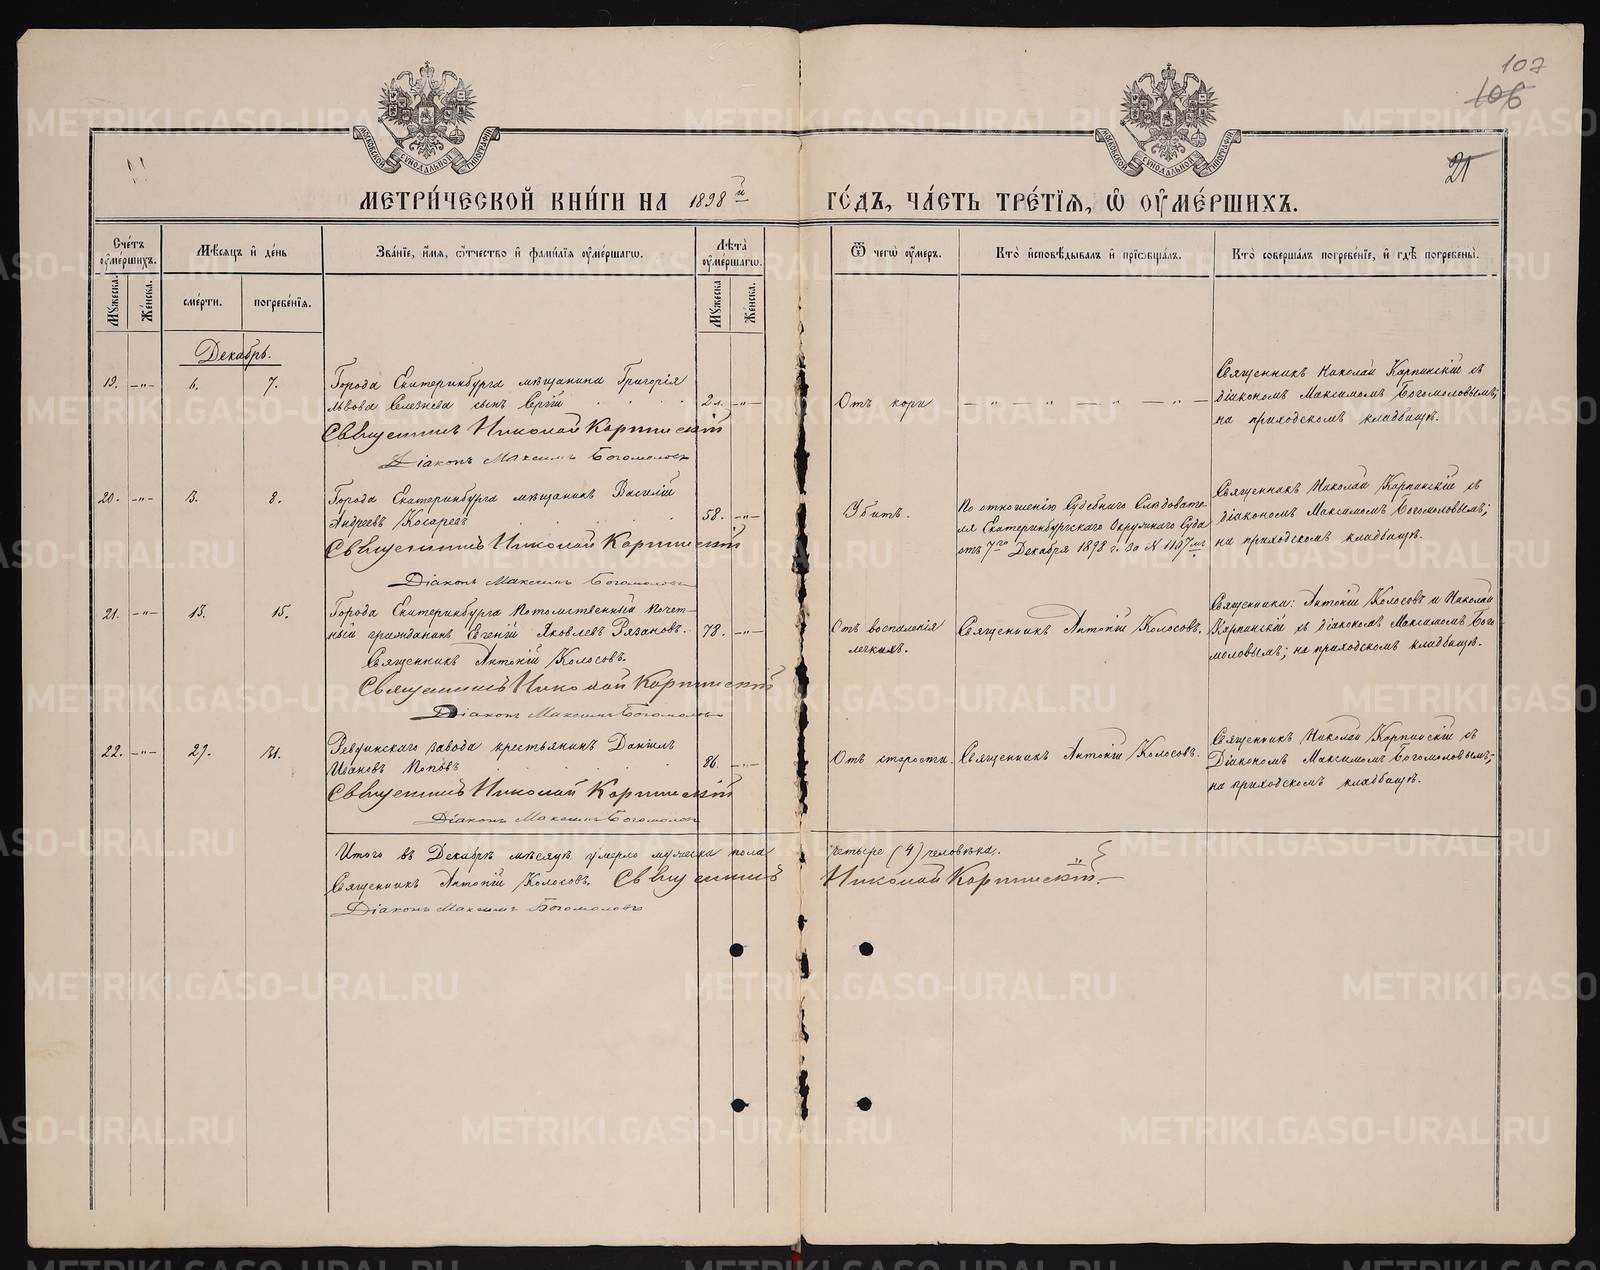 107
106
21
МОСКОВСКОЙ СѴНОДАЛЬНОЙ ТИПОГРАФІИ
МОСКОВСКОЙ СѴНОДАЛЬНОЙ ТИПОГРАФІИ
МЕТРИ́ЧЕСКОЙ КНИ́ГИ НА 1898й ГО́ДЪ, ЧА́СТЬ ТРЕ́ТІѦ, Ѡ ОУМЕ́РШИХЪ.
Сче́тъ оуме́ршихъ.
Мѣ́сяцъ и де́нь
Зва́ніе, и́мя, ѻ́тчество и фами́лія оуме́ршагѡ.
Лѣта̀ оуме́ршагѡ.
Ѿ чегѡ̀ оу́меръ.
Кто̀ исповѣ́дывалъ и пріѡбща́лъ.
Кто̀ соверша́лъ погребе́ніе, и гдѣ̀ погребены̀.
Мꙋжеска.
Же́нска.
сме́рти.
погребе́нія.
Мꙋжеска.
Же́нска.
Декабрь.
19. —"— 6. 7. Города Екатеринбурга мѣщанина Григорія
Львова Селезнева сынъ Сергій 2 л. —"—
Священникъ Николай Карпинскій
Діаконъ Максимъ Богомоловъ
Отъ кори
— " — — " — — " — — " —
Священникъ Николай Карпинскій съ
діакономъ Максимомъ Богомоловымъ;
на приходскомъ кладбищѣ.
20. —"— 3. 8. Города Екатеринбурга мѣщанинъ Василій
Андреевъ Косаревъ 58. —"—
Священникъ Николай Карпинскій
Діаконъ Максимъ Богомоловъ
Убитъ.
По отношенію Судебнаго Слѣдовате-
ля Екатеринбургскаго Окружнаго Суда
отъ 7го Декабря 1898 г. за № 1107мъ
Священникъ Николай Карпинскій съ
діакономъ Максимомъ Богомоловымъ;
на приходскомъ кладбищѣ.
21. —"— 13. 15. Города Екатеринбурга потомственный почет-
ный гражданинъ Евгеній Яковлевъ Рязановъ. 78. —"—
Священникъ Антоній Колосовъ.
Священникъ Николай Карпинскій
Діаконъ Максимъ Богомоловъ
Отъ воспаленія
легкихъ.
Священникъ Антоній Колосовъ.
Священники: Антоній Колосовъ и Николай
Карпинскій съ діакономъ Максимомъ Бого
моловымъ; на приходскомъ кладбищѣ.
22. —"— 29. 31. Ревдинскаго завода крестьянинъ Даніилъ
Ивановъ Поповъ 86. —"—
Священникъ Николай Карпинскій
Діаконъ Максимъ Богомоловъ
Отъ старости.
Священникъ Антоній Колосовъ.
Священникъ Николай Карпинскій съ
Діакономъ Максимомъ Богомоловымъ;
на приходскомъ кладбищѣ.
Итого въ Декабрѣ мѣсяцѣ умерло мужеска пола четыре (4) человѣка.
Священникъ Антоній Колосовъ. Священникъ Николай Карпинскій.
Діаконъ Максимъ Богомоловъ
METRIKI.GASO-URAL.RU